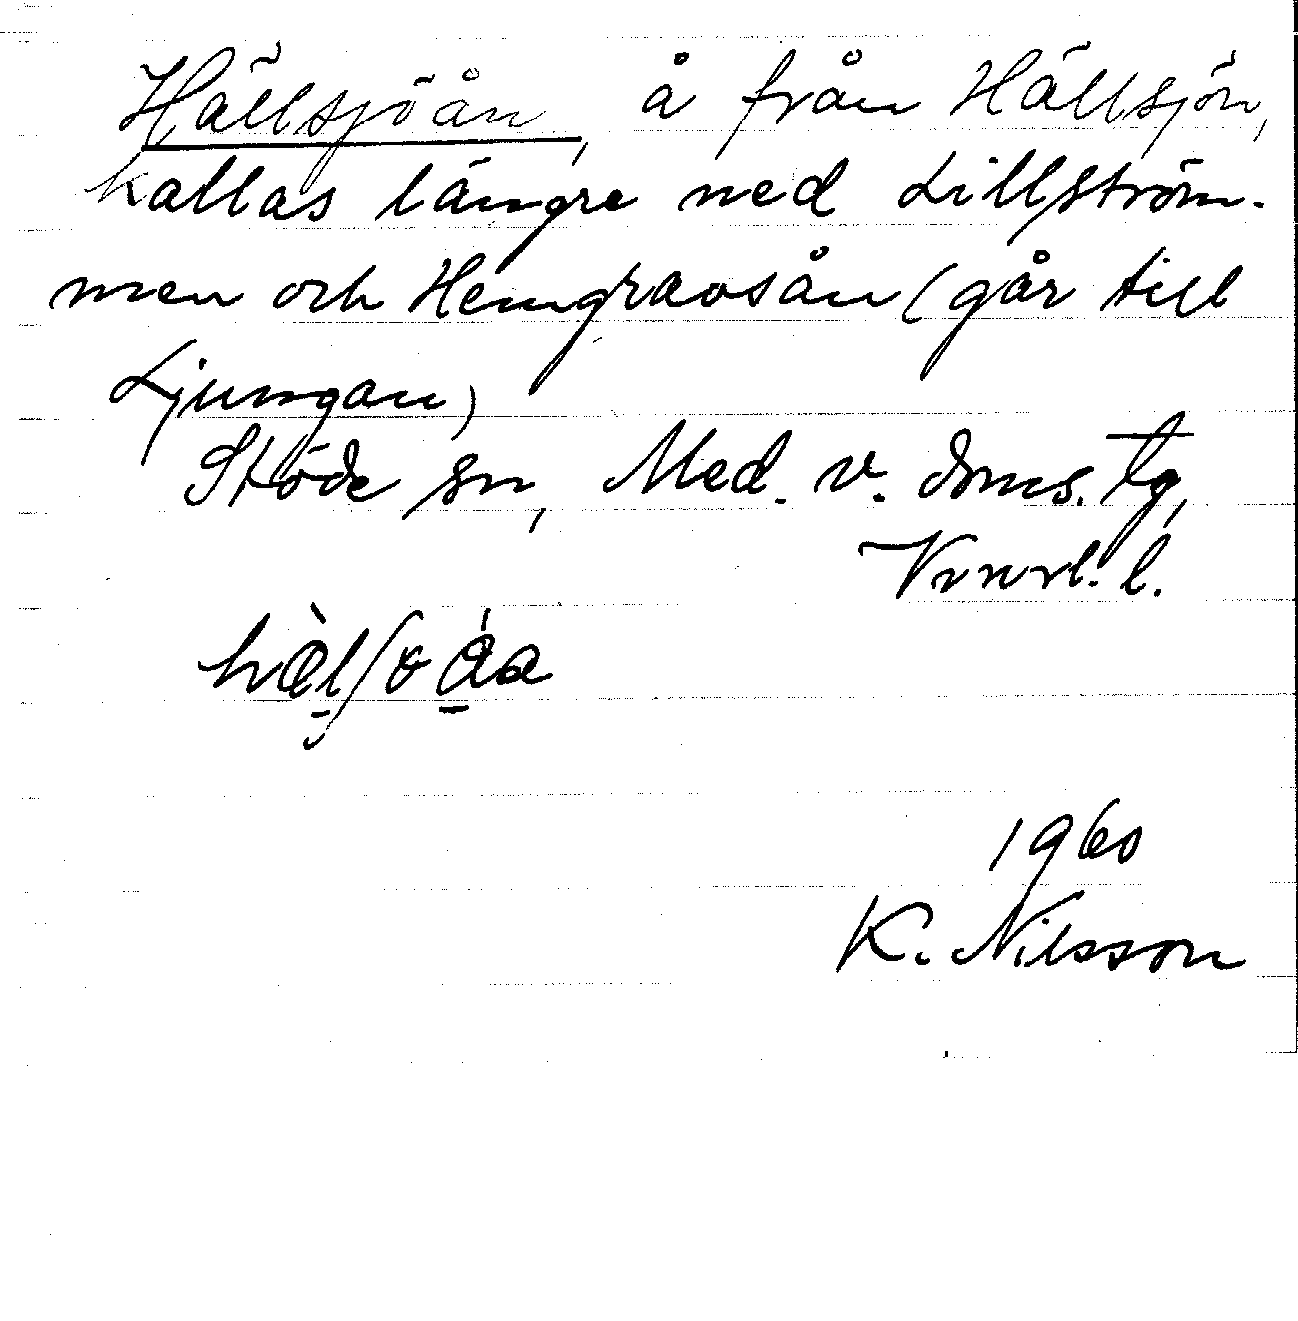 Hällsjöån, å från Hällsjön,
kallas längre ned Lillström-
men och Hemgravsån (går till
Ljungan)
Stöde sn, Med. v. doms. tg,
Vnrl. l.
1960
K. Nilsson